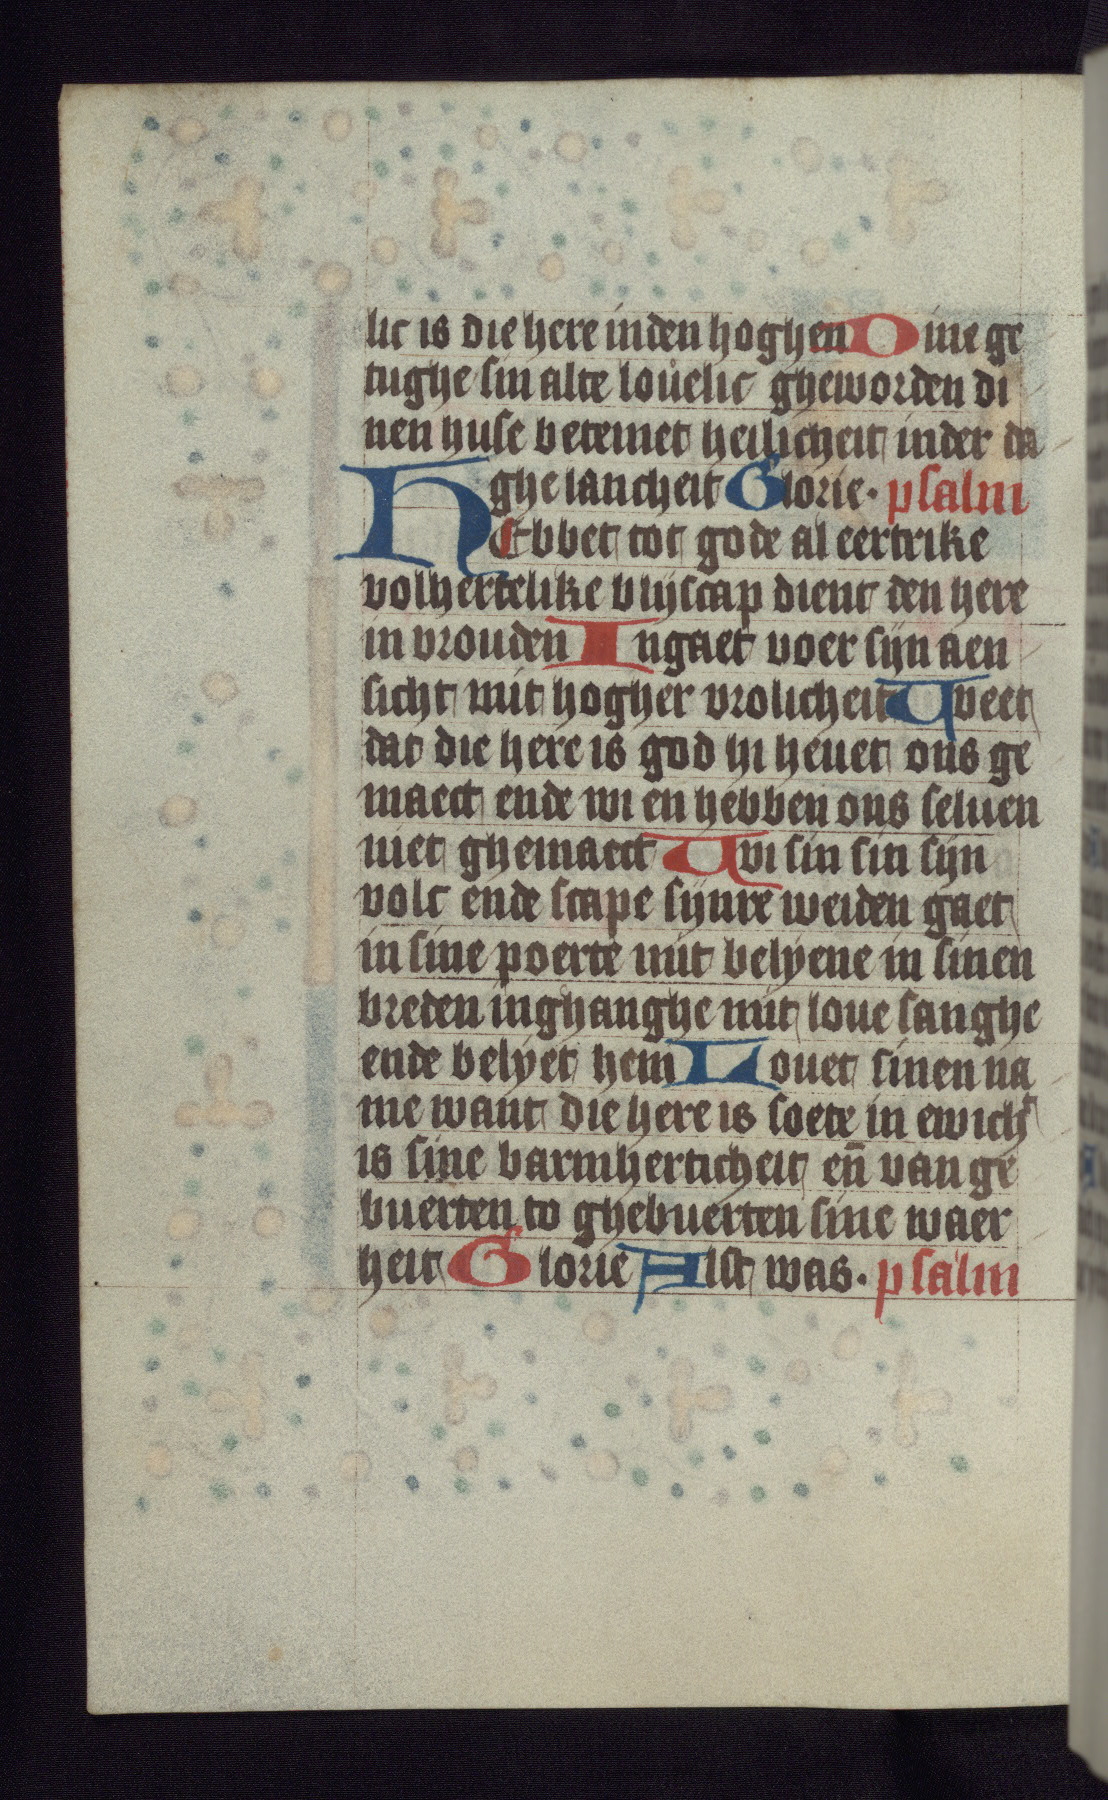 lic is die here inden hoghen Dine ge
tughe sin alte louelic gheworden di
nen huse betemet heilicheit inder da
ghe lancheit Glorie. psalm
HEbbet tot gode al eertrike
volhertelike blijscap dient den here
in vrouden Ingaet voer sijn aen
sicht mit hogher vrolicheit Weet
dat die here is god hi heuet ons ge
maect ende wi en hebben ons seluen
niet ghemaect Wi sin sin sijn
volc ende scape sijnre weiden gaet
in sine poerte mit belyene in sinen
breden inghanghe mit loue sanghe
ende belyet hem Louet sinen na
me want die here is soete in ewich͛
is sine barmherticheit en̄ van ge
buerten to ghebuerten sine waer
heit Glorie Alst was. psalm